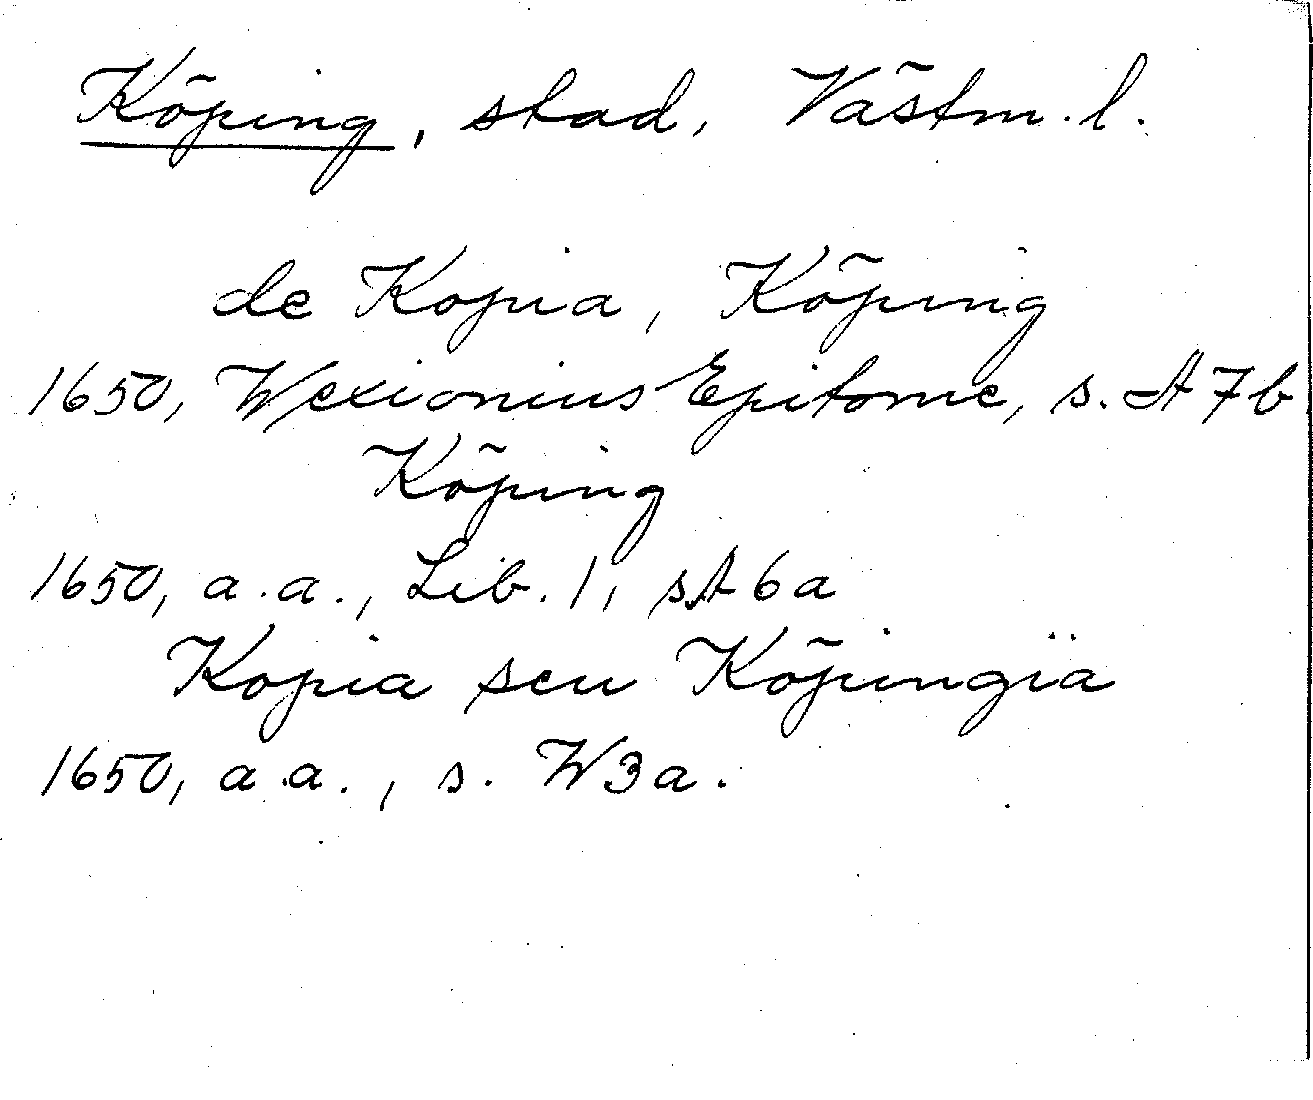 Köping, stad, Västm. l.
de Kopia, Köping
1650, Wexionius Epitome, s. A 7b
Köping
1650, a.a., Lib. 1, s A 6a
Kopia seu Köpingia
1650, a.a., s. W3a.